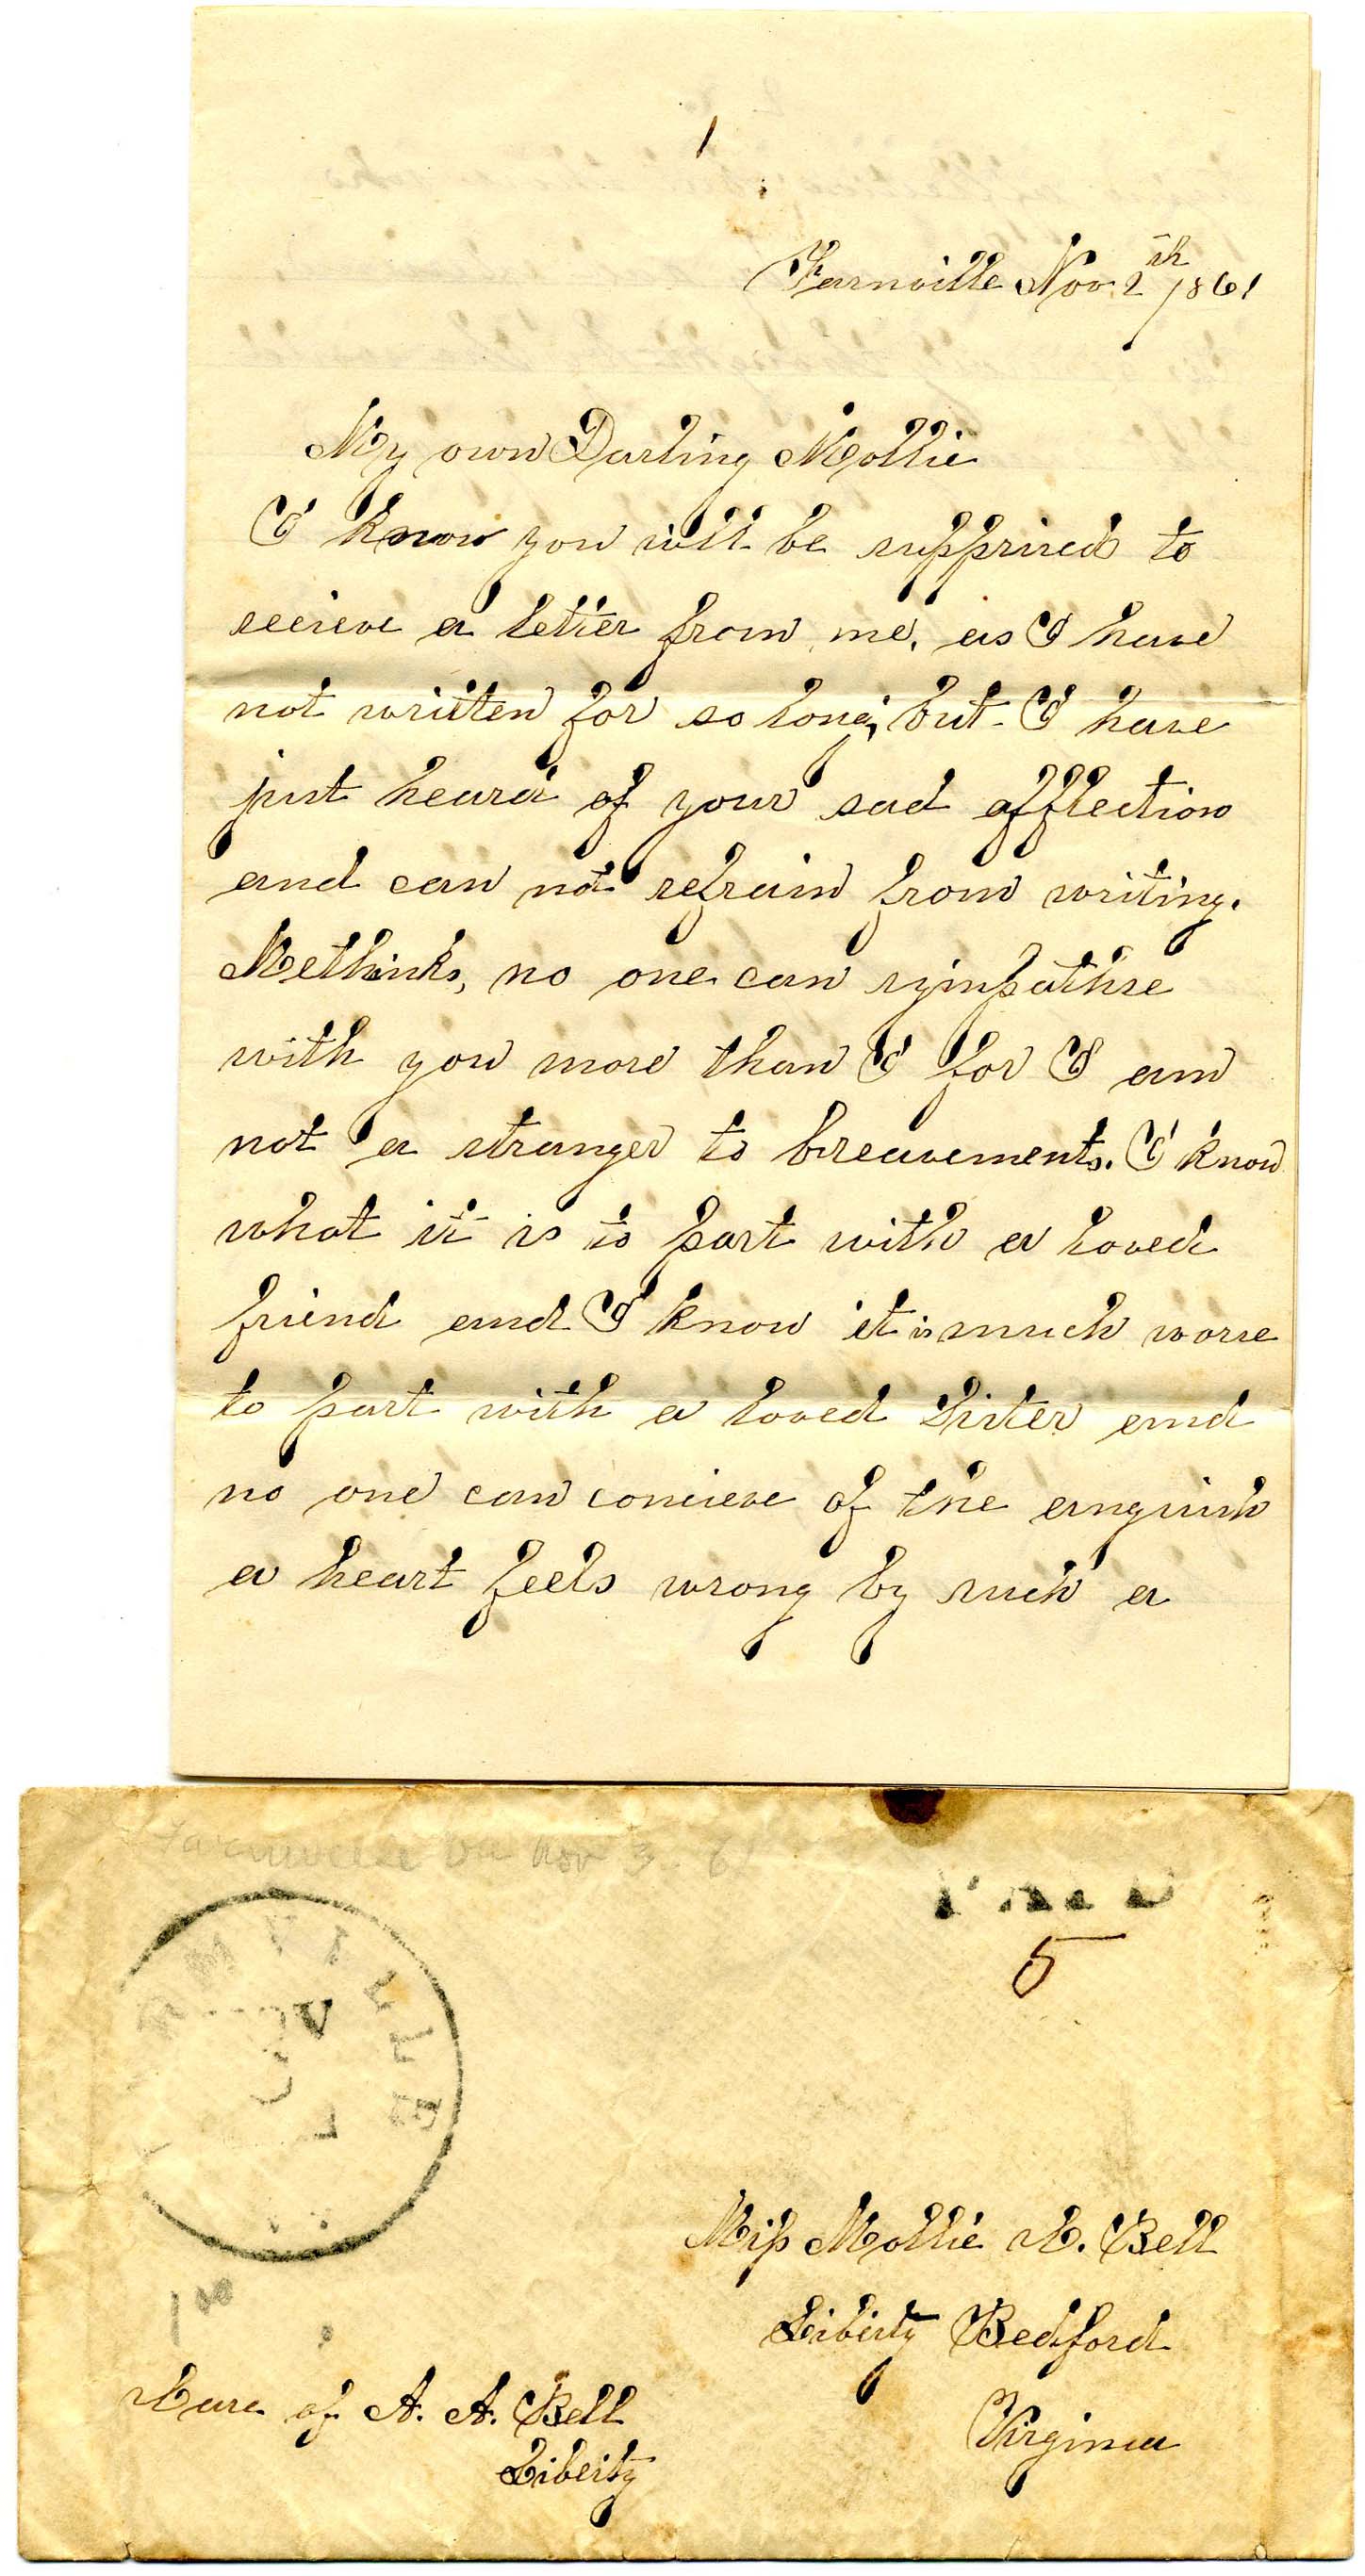 1
Farmville Nov 2th 1861
My own Darling Mollie
I know you will be supprised to
recieve a letter from me, as I have
not written for so long, but I have
just heard of your sad afflection
and can not refrain from writing.
Methinks, no one can sympathise
with you more than I for I am
not a stranger to breavements. I know
what it is to part with a loved
friend and I know it is much worse
to part with a loved Sister and
no one can concieve of the anguish
a heart feels wrong by such a
Farmville Va Nov 3. 61
PAID
5
100
Miss Mollie Bell
Liberty Bedford
Virginia
Care of A. A. Bell
Liberty